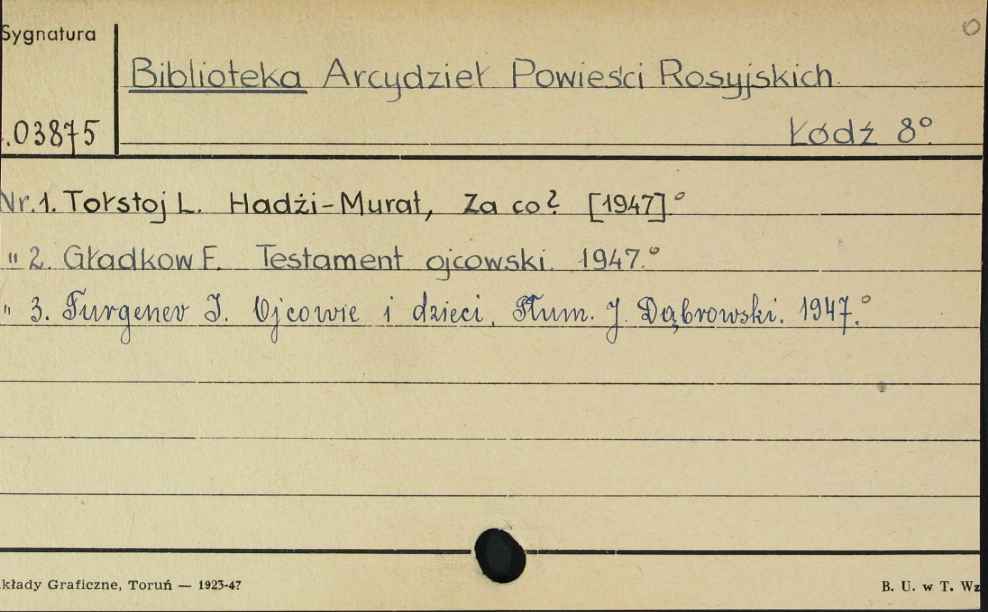 Sygnatura
Biblioteka Arcydzieł Powieści Rosyjskich.
.03875
Łódź 8°.
Nr.1. Tołstoj L. Hadżi-Murat, Za co? [1947].°
" 2. Gładkow F. Testament ojcowski. 1947.°
" 3. Turgenev I. Ojcowie i dzieci. Tłum. J. Dąbrowski. 1947.°
kłady Graficzne, Toruń — 1923-47
B. U. w T. Wz